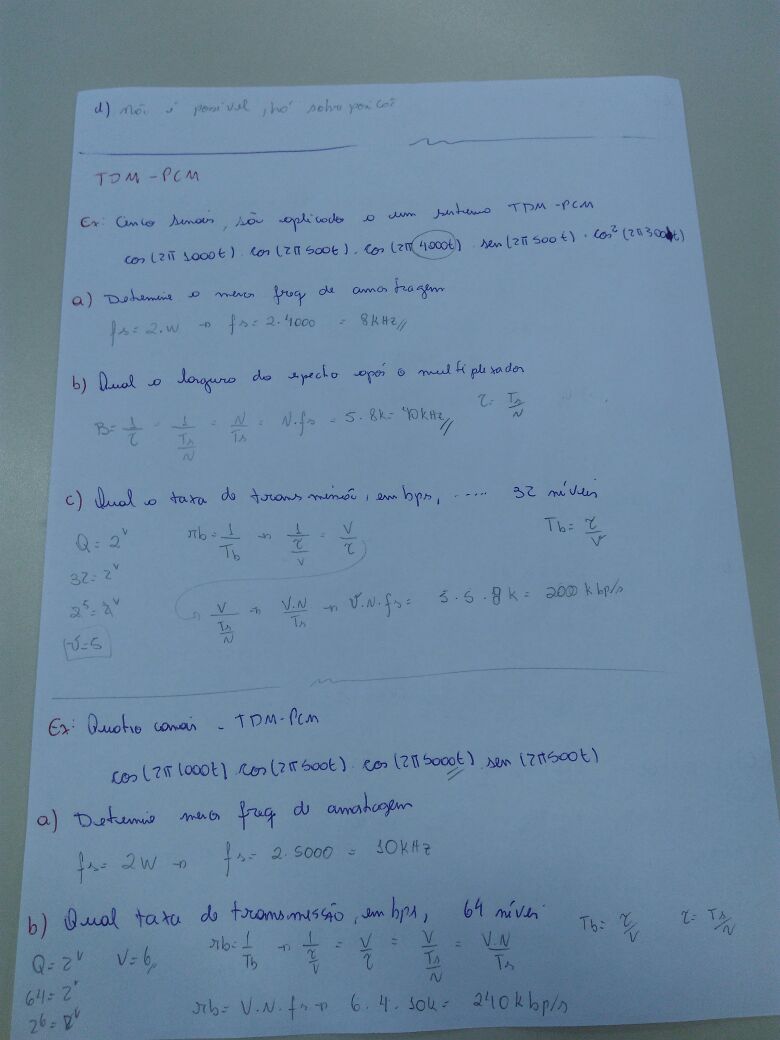 d) não é possível, há sobreposição
TDM-PCM
Ex: Cinco sinais, são aplicado a um sistema TDM-PCM
cos(2π1000t). cos(2π500t). cos(2π4000t). sen(2π500t). cos²(2π300t)
a) Determine a menor freq de amostragem
fs = 2.W → fs = 2.4000 = 8kHz//
b) Qual a largura do espectro após o multiplexador
B = 1/τ = 1/(Ts/N) = N/Ts = N.fs = 5.8k = 40kHz// τ = Ts/N
c) Qual a taxa de transmissão, em bps, ..... 32 níveis
Q = 2^v rb = 1/Tb → 1/(τ/v) = v/τ Tb = τ/v
32 = 2^v
2^5 = 2^v → v/(Ts/N) → V.N/Ts → v.N.fs = 5.5.8k = 2000kbp/s
v=5
Ex: Quatro canais - TDM-PCM
cos(2π1000t) cos(2π500t). cos(2π5000t). sen(2π500t)
a) Determine menor freq de amostragem
fs = 2W → fs = 2.5000 = 10kHz
b) Qual taxa de transmissão, em bps, 64 níveis Tb = τ/v τ = Ts/N
Q = 2^v V=6, rb = 1/Tb → 1/(τ/v) = V/τ = V/(Ts/N) = V.N/Ts
64 = 2^v
26 = 2^v rb = V.N.fs → 6.4.10k = 240kbp/s